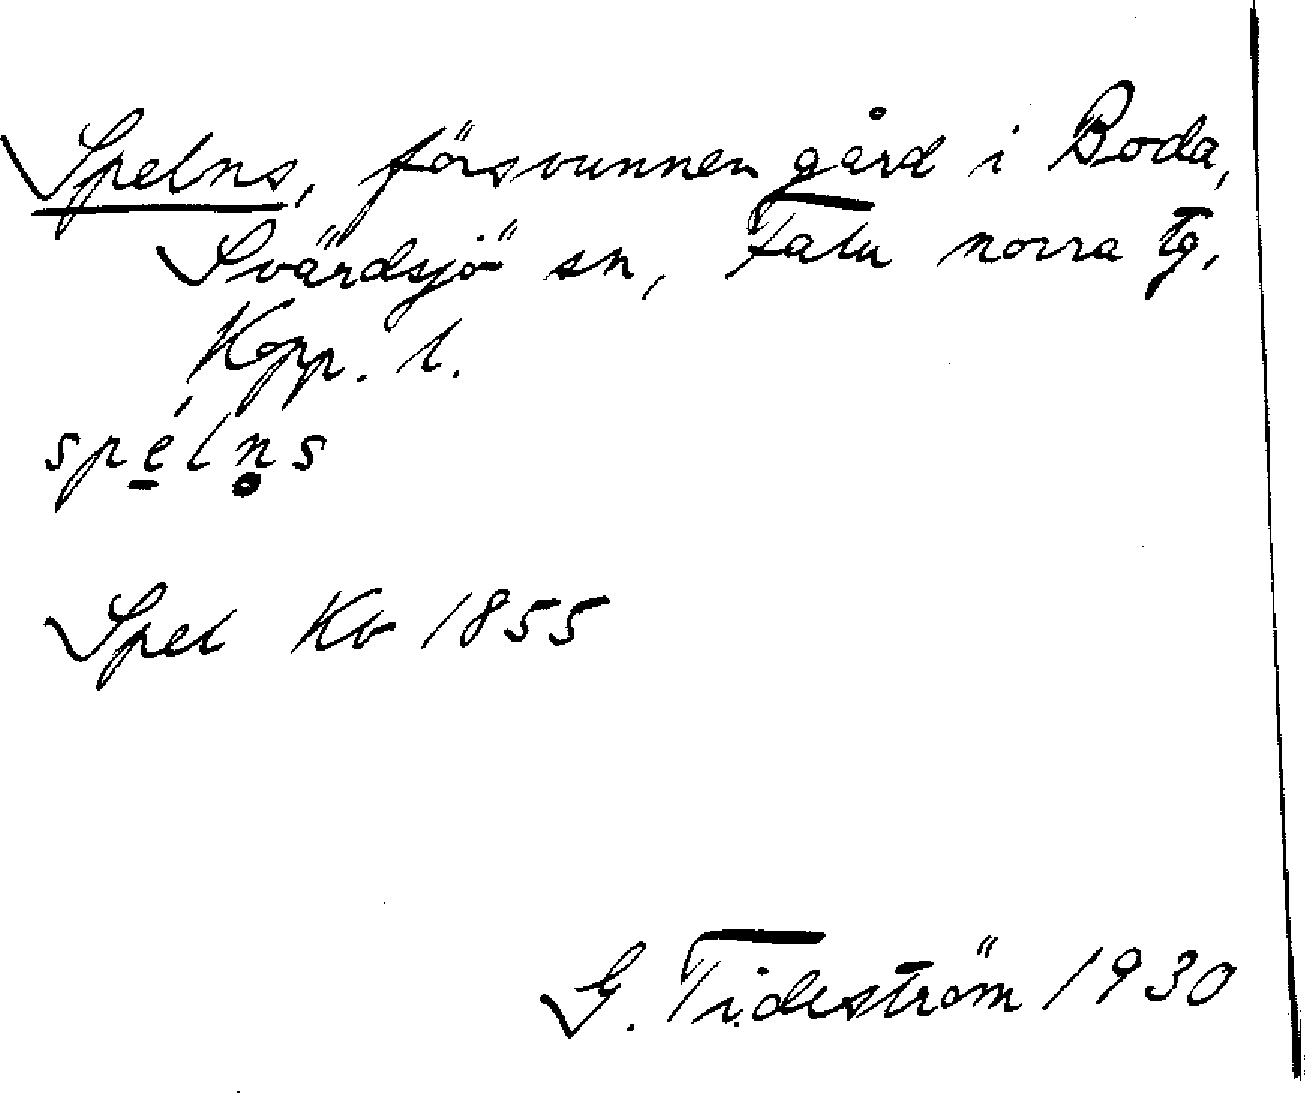 Spelns, försvunnen gård i Boda,
Svärdsjö sn, Falu norra tg,
Kopp. l.
spé̱ln̥s
Spel Kb 1855
G. Tideström 1930